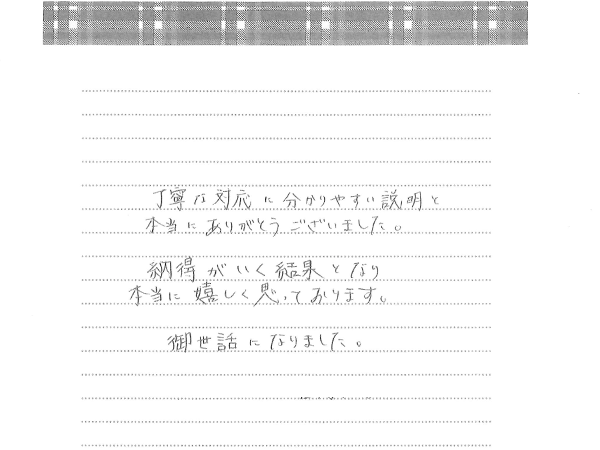 丁寧な対応に分かりやすい説明と
本当にありがとうございました。
納得がいく結果となり
本当に嬉しく思っております。
御世話になりました。